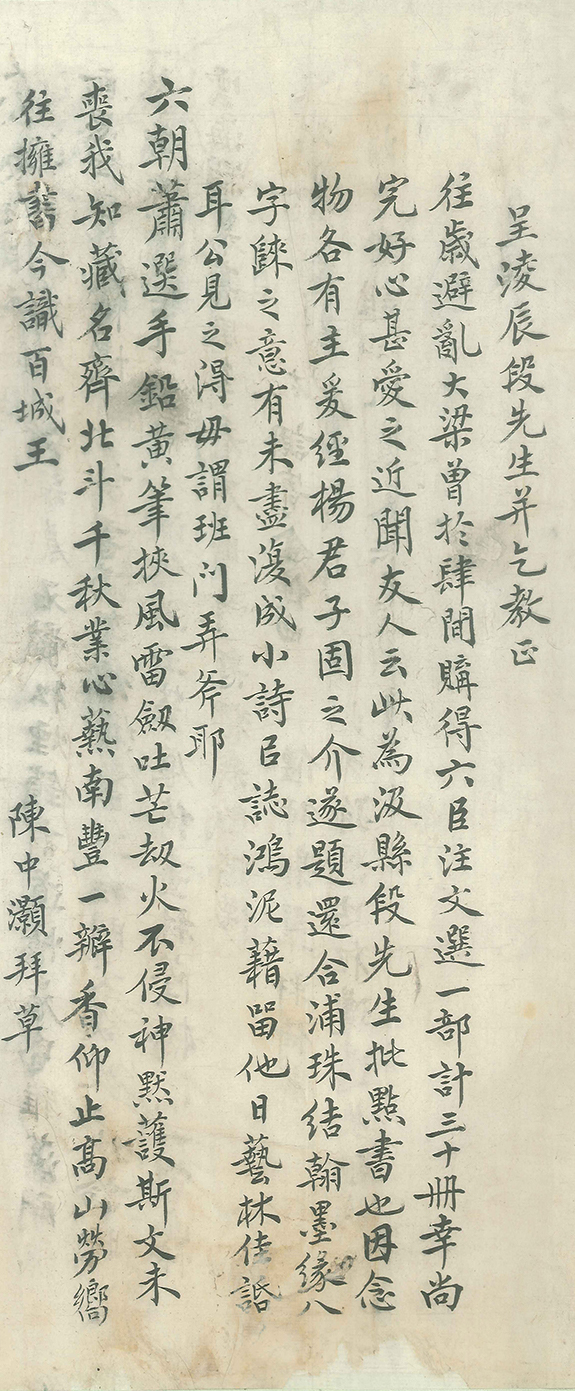 呈淩辰段先生并乞教正
往歲避亂大梁曾於肆間購得六臣注文選一部計三十冊幸尚
完好心甚愛之近聞友人云此為汲縣段先生批點書也因念
物各有主爰經楊君子固之介遂題還合浦珠結翰墨緣八
字歸之意有未盡復成小詩㠯誌鴻泥藉畱他日藝林佳話
耳公見之得毋謂班门弄斧耶
六朝蕭選手鉛黃筆挾風雷劔吐芒劫火不侵神黙護斯文未
喪我知藏名齊北斗千秋業心爇南豐一瓣香仰止髙山勞嚮
往擁書今識百城王
陳中灝拜草